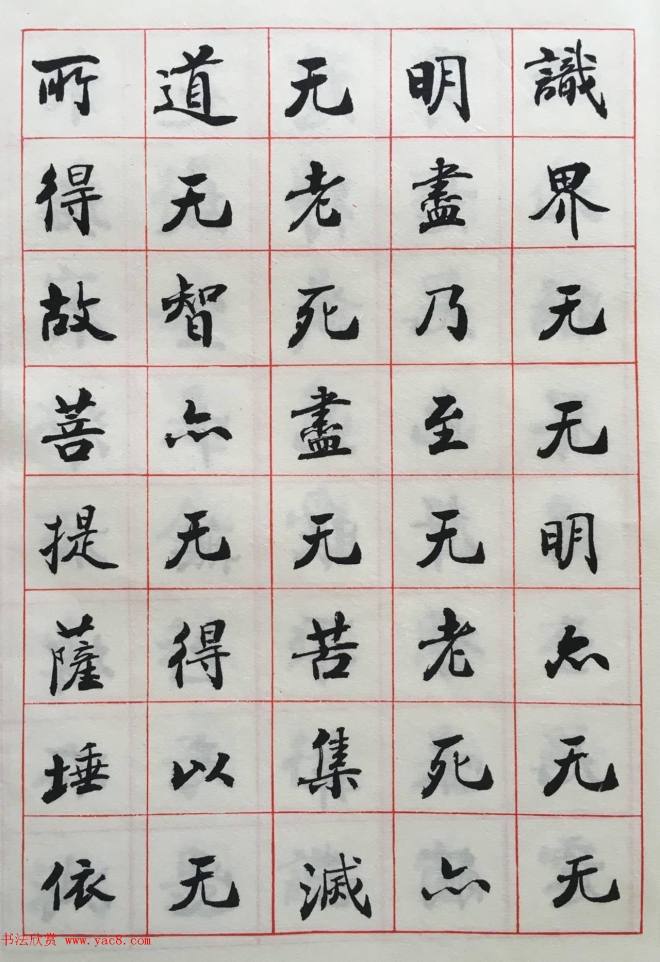 識界无无明亦无无
明盡乃至无老死亦
无老死盡无苦集滅
道无智亦无得以无
所得故菩提薩埵依
书法欣赏 www.yac8.com